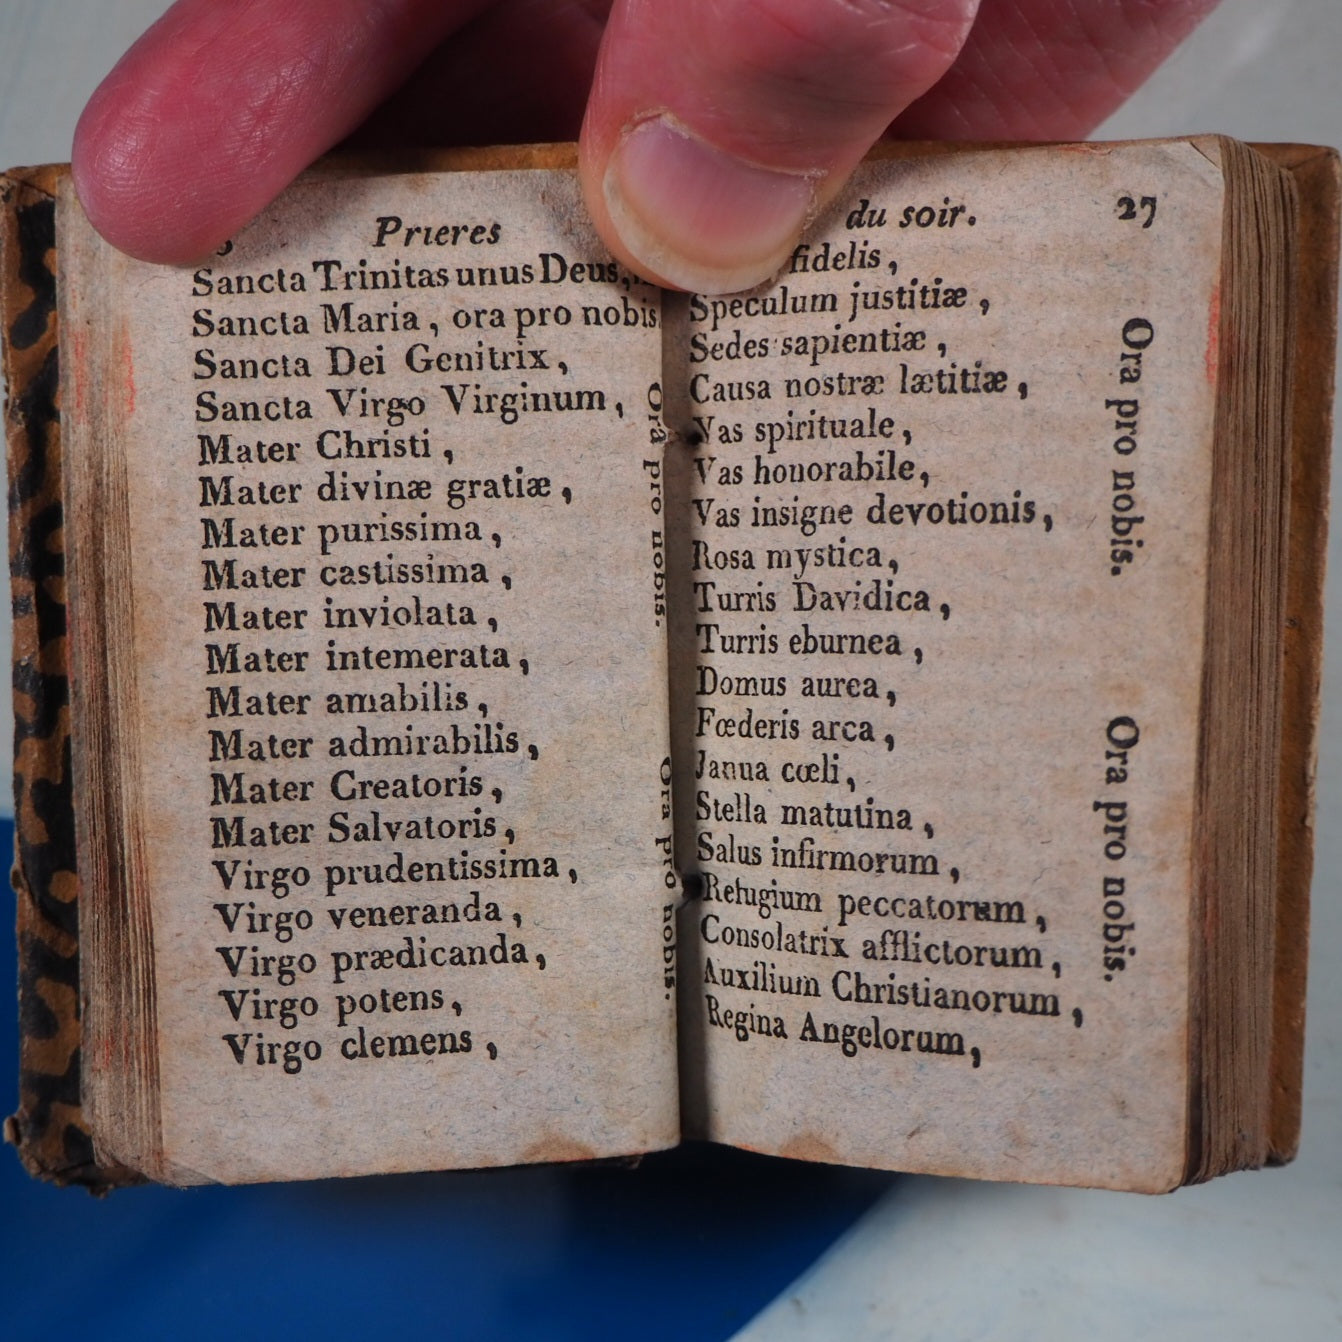 Prieres
Sancta Trinitas unus Deus,
Sancta Maria, ora pro nobis.
Sancta Dei Genitrix,
Sancta Virgo Virginum,
Mater Christi,
Mater divinæ gratiæ,
Mater purissima,
Mater castissima,
Mater inviolata,
Mater intemerata,
Mater amabilis,
Mater admirabilis,
Mater Creatoris,
Mater Salvatoris,
Virgo prudentissima,
Virgo veneranda,
Virgo prædicanda,
Virgo potens,
Virgo clemens,
Ora pro nobis.
Ora pro nobis.
du soir. 27
fidelis,
Speculum justitiæ,
Sedes sapientiæ,
Causa nostræ lætitiæ,
Vas spirituale,
Vas honorabile,
Vas insigne devotionis,
Rosa mystica,
Turris Davidica,
Turris eburnea,
Domus aurea,
Fœderis arca,
Janua cœli,
Stella matutina,
Salus infirmorum,
Refugium peccatorum,
Consolatrix afflictorum,
Auxilium Christianorum,
Regina Angelorum,
Ora pro nobis.
Ora pro nobis.